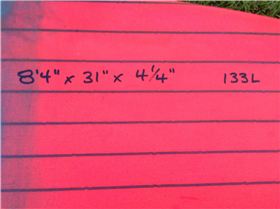 8'4" x 31" x 4¼" 133L